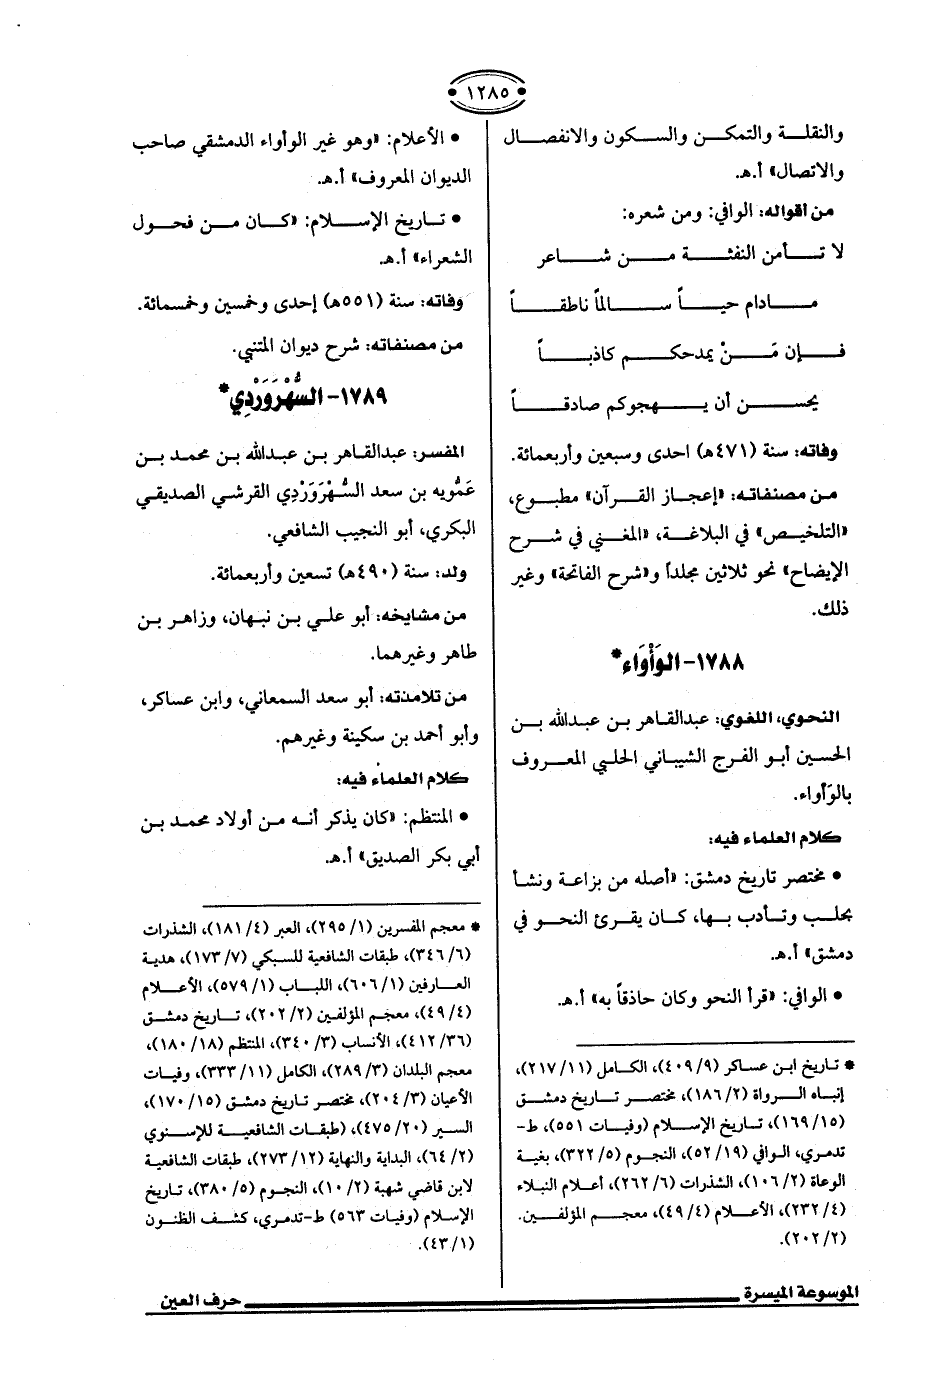 ١٢٨٥
والنقلة والتمكن والسكون والانفصال
والاتصال» أ.هـ.
من أقواله: الوافي: ومن شعره:
لا تأمن النفثة من شاعر
مادام حياً سالماً ناطقاً
فإن مَنْ يمدحكم كاذباً
يحسن أن يهجوكم صادقاً
وفاته: سنة (٤٧١هـ) احدى وسبعين وأربعمائة.
من مصنفاته: «إعجاز القرآن» مطبوع،
«التلخيص» في البلاغة، «المغني في شرح
الإيضاح» نحو ثلاثين مجلداً و«شرح الفاتحة» وغير
ذلك.
١٧٨٨- الوَأْوَاء*
النحوي، اللغوي: عبدالقاهر بن عبدالله بن
الحسين أبو الفرج الشيباني الحلبي المعروف
بالوَأواء.
كلام العلماء فيه:
• مختصر تاريخ دمشق: «أصله من بزاعة ونشأ
بحلب وتأدب بها، كان يقرئ النحو في
دمشق» أ.هـ.
• الوافي: «قرأ النحو وكان حاذقاً به» أ.هـ.
* تاريخ ابن عساكر (٤٠٩/٩)، الكامل (٢١٧/١١)،
إنباه الرواة (١٨٦/٢)، مختصر تاريخ دمشق
(١٦٩/١٥)، تاريخ الإسلام (وفيات ٥٥١)، ط-
تدمري، الوافي (٥٢/١٩)، النجوم (٣٢٢/٥)، بغية
الوعاة (١٠٦/٢)، الشذرات (٢٦٢/٦)، أعلام النبلاء
(٢٣٢/٤)، الأعلام (٤٩/٤)، معجم المؤلفين.
(٢٠٢/٢).
• الأعلام: «وهو غير الوأواء الدمشقي صاحب
الديوان المعروف» أ.هـ.
• تاريخ الإسلام: «كان من فحول
الشعراء» أ.هـ.
وفاته: سنة (٥٥١هـ) إحدى وخمسين وخمسمائة.
من مصنفاته: شرح ديوان المتنبي.
١٧٨٩- السُّهْرَوَرْدِي*
المفسر: عبدالقاهر بن عبدالله بن محمد بن
عَمُّويه بن سعد السُّهْرَوَرْدِي القرشي الصديقي
البكري، أبو النجيب الشافعي.
ولد: سنة (٤٩٠هـ) تسعين وأربعمائة.
من مشايخه: أبو علي بن نبهان، وزاهر بن
طاهر وغيرهما.
من تلامذته: أبو سعد السمعاني، وابن عساكر،
وأبو أحمد بن سكينة وغيرهم.
كلام العلماء فيه:
• المنتظم: «كان يذكر أنه من أولاد محمد بن
أبي بكر الصديق» أ.هـ.
* معجم المفسرين (٢٩٥/١)، العبر (١٨١/٤)، الشذرات
(٣٤٦/٦)، طبقات الشافعية للسبكي (١٧٣/٧)، هدية
العارفين (٦٠٦/١)، اللباب (٥٧٩/١)، الأعلام
(٤٩/٤)، معجم المؤلفين (٢٠٢/٢)، تاريخ دمشق
(٤١٢/٣٦)، الأنساب (٣٤٠/٣)، المنتظم (١٨٠/١٨)،
معجم البلدان (٢٨٩/٣)، الكامل (٣٣٣/١١)، وفيات
الأعيان (٢٠٤/٣)، مختصر تاريخ دمشق (١٧٠/١٥)،
السير (٤٧٥/٢٠)، (طبقات الشافعية للإسنوي
(٦٤/٢)، البداية والنهاية (٢٧٣/١٢)، طبقات الشافعية
لابن قاضي شهبة (١٠/٢)، النجوم (٣٨٠/٥)، تاريخ
الإسلام (وفيات ٥٦٣) ط-تدمري، كشف الظنون
(٤٣/١).
الموسوعة الميسرة
حرف العين